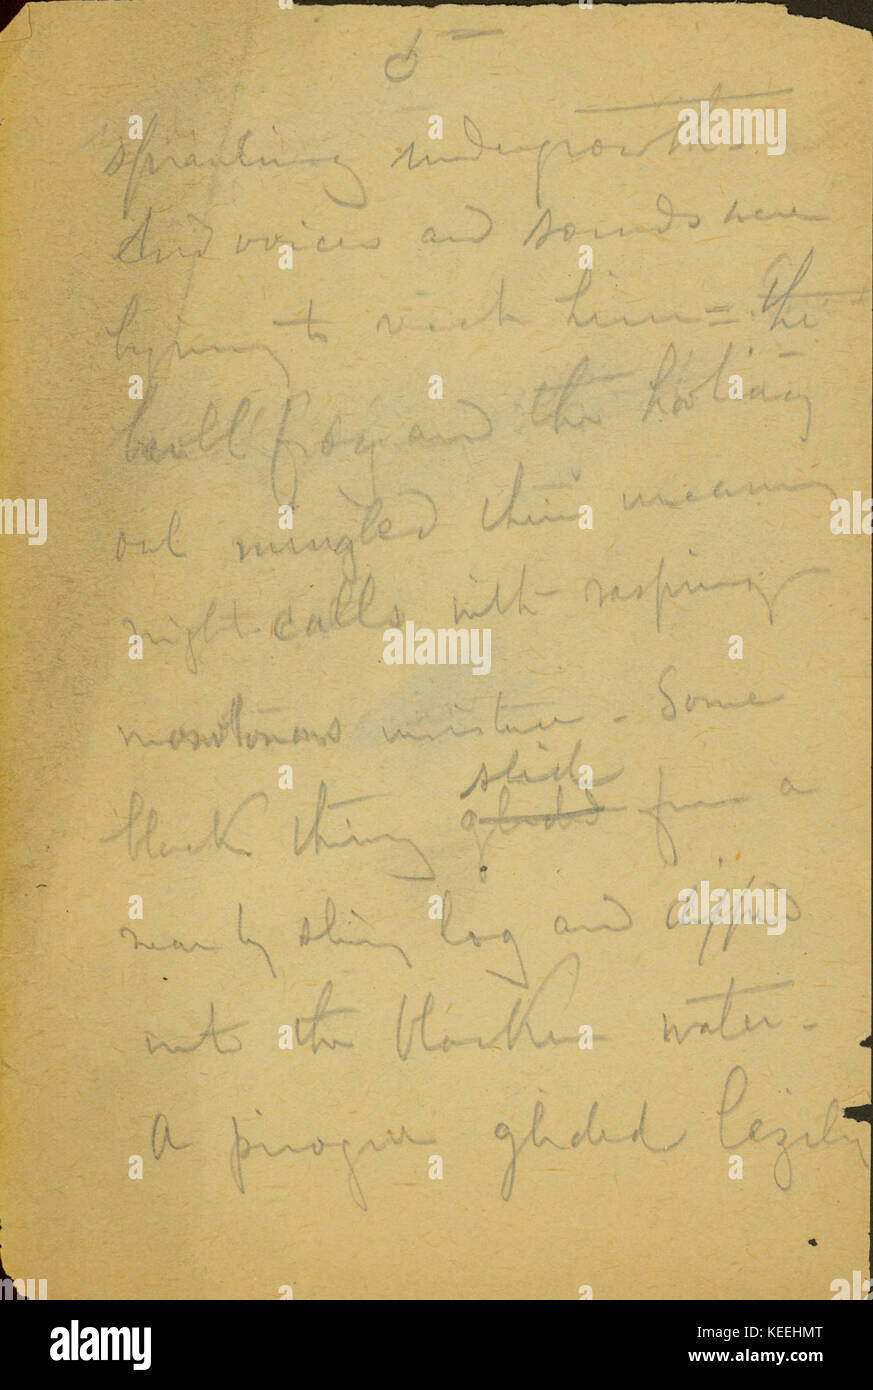 5
sprawling undergrowth.
And voices and sounds were
to reach him = The
bull frog and the hooting
owl mingled their meaning
night calls with rasping
monotonous insistence - Some
black thing slid glided from a
near by slimy log and dipped
into the blacker water -
A pirogue glided lazily
alamy
Image ID: KEEHMT
www.alamy.com